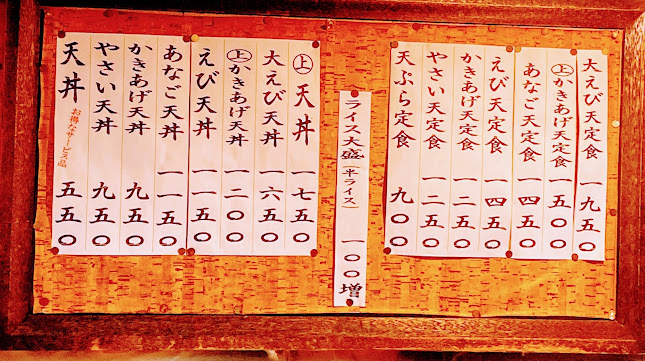 大えび天定食 一九五〇
㊤かきあげ天定食 一五〇〇
あなご天定食 一四五〇
えび天定食 一四五〇
かきあげ天定食 一二五〇
やさい天定食 一二五〇
天ぷら定食 九〇〇
ライス大盛(半ライス) 一〇〇増
㊤天丼 一七五〇
大えび天丼 一六五〇
㊤かきあげ天丼 一二〇〇
えび天丼 一一五〇
あなご天丼 一一五〇
かきあげ天丼 九五〇
やさい天丼 九五〇
天丼 お得なサービス品 五五〇